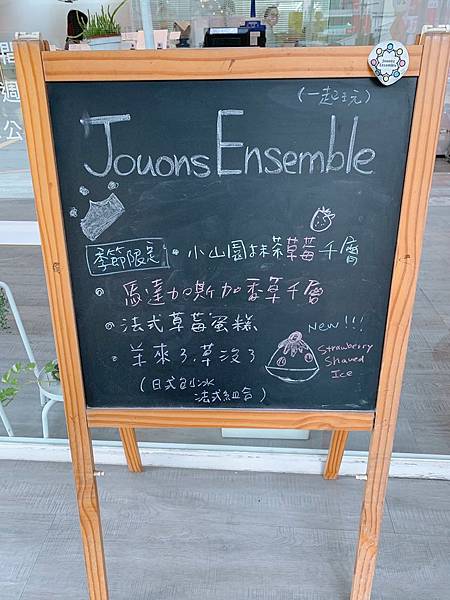 (一起玩)
Jouons Ensemble
季節限定 • 小山園抹茶草莓千層
• 馬達加斯加香草千層
• 法式草莓蛋糕
• 羊來了.草沒了
(日式刨冰
法式組合)
New!!!
Strawberry
Shaved
Ice
週
公